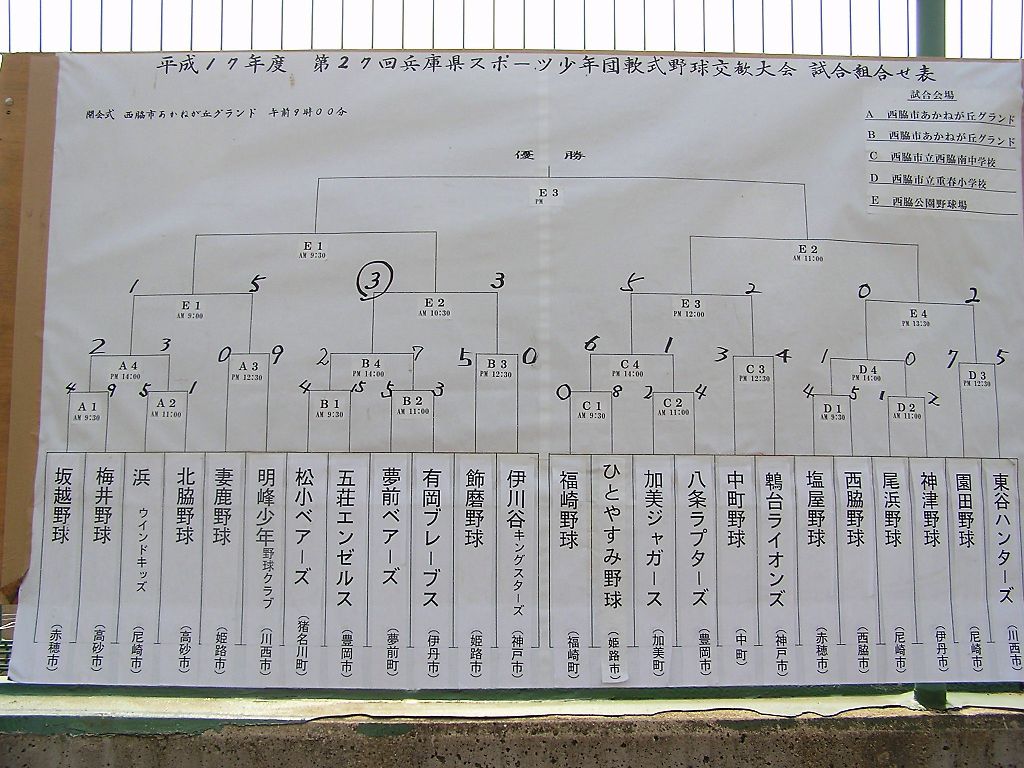 平成17年度 第27回兵庫県スポーツ少年団軟式野球交歓大会 試合組合せ表
開会式 西脇市あかねが丘グランド 午前9時00分
試合会場
A 西脇市あかねが丘グランド
B 西脇市あかねが丘グランド
C 西脇市立西脇南中学校
D 西脇市立重春小学校
E 西脇公園野球場
優勝
E3
PM
E1
AM 9:30
E2
AM 11:00
1 5 3 3 5 2 0 2
E1
AM 9:00
E2
AM 10:30
E3
PM 12:00
E4
PM 13:30
2 3 0 9 2 7 5 0 6 1 3 4 1 0 7 5
A4
PM 14:00
A3
PM 12:30
B4
PM 14:00
B3
PM 12:30
C4
PM 14:00
C3
PM 12:30
D4
PM 14:00
D3
PM 12:30
4 9 5 1 4 15 5 3 0 8 2 4 4 5 1 2
A1
AM 9:30
A2
AM 11:00
B1
AM 9:30
B2
AM 11:00
C1
AM 9:30
C2
AM 11:00
D1
AM 9:30
D2
AM 11:00
坂越野球 (赤穂市)
梅井野球 (高砂市)
浜 ウインドキッズ (尼崎市)
北脇野球 (高砂市)
妻鹿野球 (姫路市)
明峰少年野球クラブ (川西市)
松小ベアーズ (猪名川町)
五荘エンゼルス (豊岡市)
夢前ベアーズ (夢前町)
有岡ブレーブス (伊丹市)
飾磨野球 (姫路市)
伊川谷キングスターズ (神戸市)
福崎野球 (福崎町)
ひとやすみ野球 (姫路市)
加美ジャガース (加美町)
八条ラプターズ (豊岡市)
中町野球 (中町)
鵯台ライオンズ (神戸市)
塩屋野球 (赤穂市)
西脇野球 (西脇市)
尾浜野球 (尼崎市)
神津野球 (伊丹市)
園田野球 (尼崎市)
東谷ハンターズ (川西市)